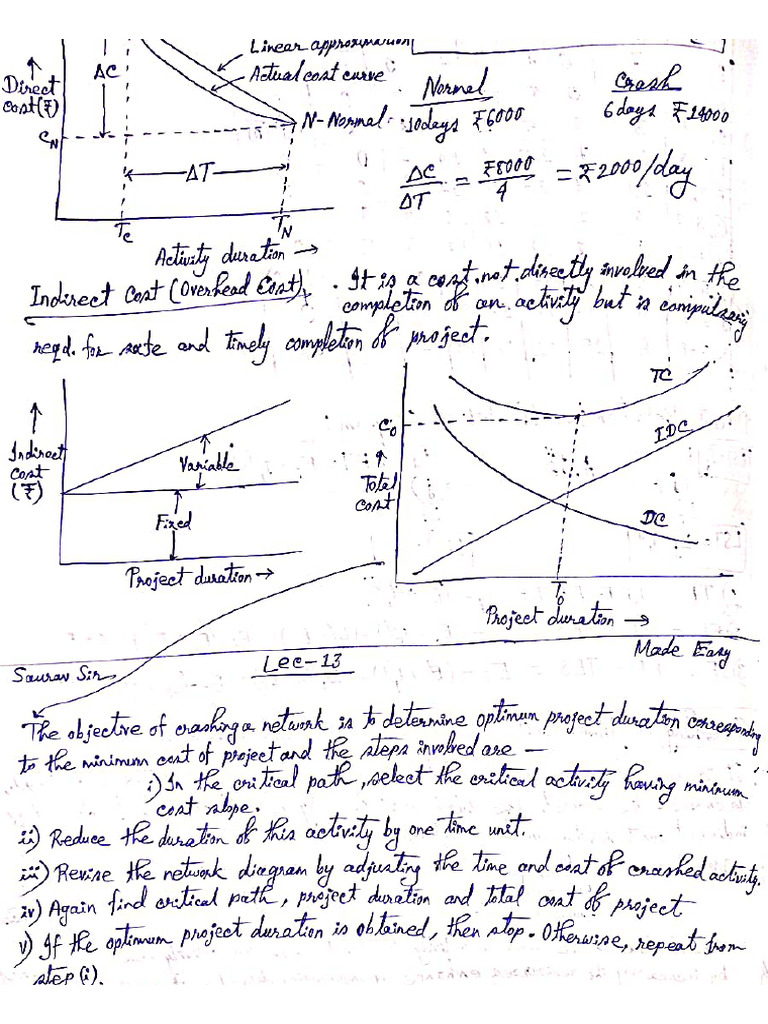 Linear approximation
Actual cost curve
Direct
cost(₹)
ΔC
C_N
N-Normal
ΔT
T_C
T_N
Activity duration →
Normal
10days ₹6000
Crash
6days ₹14000
ΔC/ΔT = ₹8000/4 = ₹2000/day
Indirect Cost (Overhead Cost). It is a cost not directly involved in the
completion of an activity but is compulsary
reqd. for safe and timely completion of project.
Indirect
cost
(₹)
Variable
Fixed
Project duration →
TC
C_0
IDC
Total
cost
DC
T_0
Project duration →
Saurav Sir
Lec-13
Made Easy
The objective of crashing a network is to determine optimum project duration corresponding
to the minimum cost of project and the steps involved are —
i) In the critical path, select the critical activity having minimum
cost slope.
ii) Reduce the duration of this activity by one time unit.
iii) Revise the network diagram by adjusting the time and cost of crashed activity.
iv) Again find critical path, project duration and total cost of project
v) If the optimum project duration is obtained, then stop. Otherwise, repeat from
step (i).